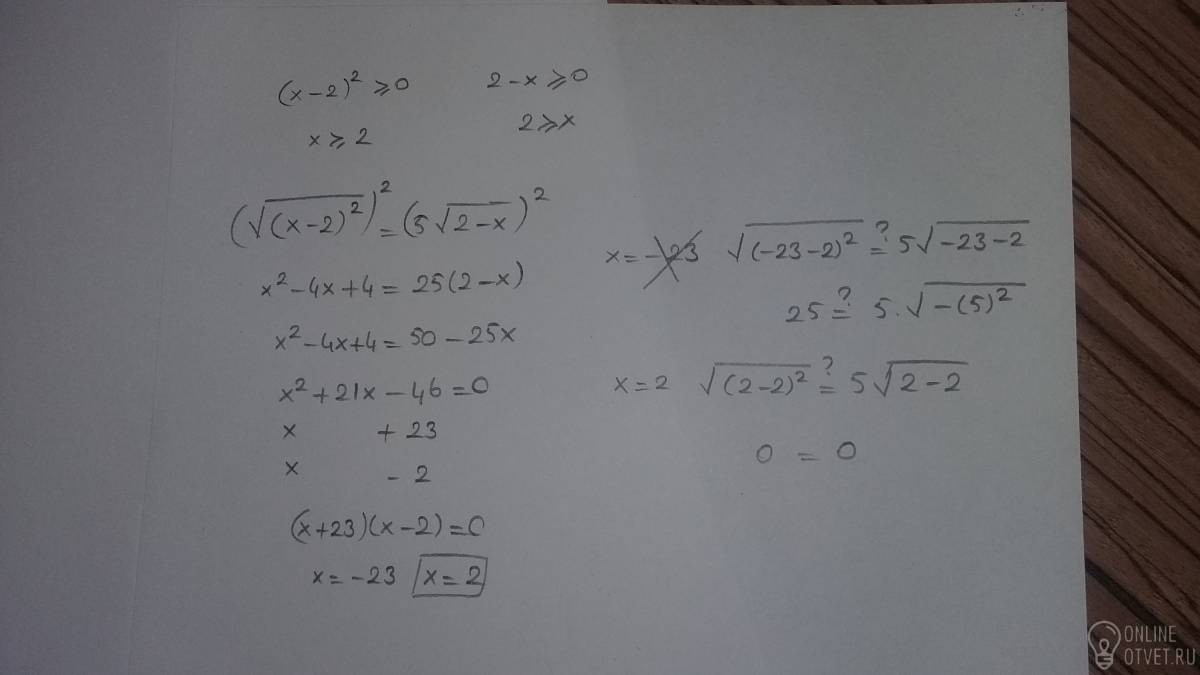 (x-2)² ⩾ 0
x ⩾ 2
2-x ⩾ 0
2 ⩾ x
(√(x-2)²)² = (5√2-x)²
x²-4x+4 = 25(2-x)
x²-4x+4 = 50-25x
x²+21x-46 = 0
x +23
x -2
(x+23)(x-2) = 0
x = -23 x = 2
x = -23 √(-23-2)² ?= 5√-23-2
25 ?= 5.√-(5)²
x = 2 √(2-2)² ?= 5√2-2
0 = 0
ONLINE
OTVET.RU